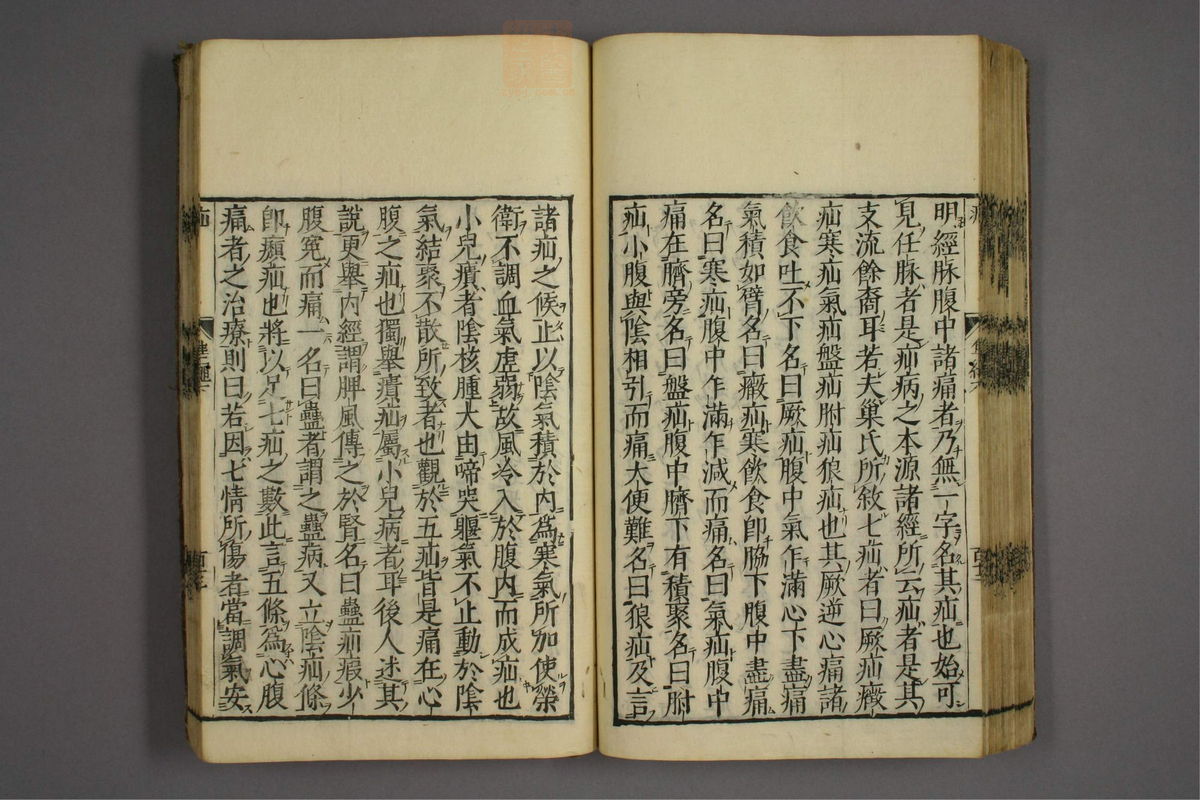 明經脉腹中諸痛者乃無一字名其疝也始可
見任脉者是疝病之本源諸經所云疝者是其
支流餘裔耳若夫巢氏所敘七疝者曰厥疝癥
疝寒疝氣疝盤疝胕疝狼疝也其厥逆心痛諸
飲食吐不下名曰厥疝腹中氣乍滿心下盡痛
氣積如臂名曰癥疝寒飲食卽脇下腹中盡痛
名曰寒疝腹中乍滿乍減而痛名曰氣疝腹中
痛在臍旁名曰盤疝腹中臍下有積聚名曰胕
疝小腹與陰相引而痛大便難名曰狼疝及言
諸疝之候止以陰氣積於內爲寒氣所加使榮
衛不調血氣虛弱故風冷入於腹內而成疝也
小兒㿗者陰核腫大由啼哭軀氣不止動於陰
氣結聚不散所致者也觀於五疝皆是痛在心
腹之疝也獨舉㿗疝屬小兒病者耳後人述其
說更舉內經謂脾風傳之於腎名曰蠱疝瘕少
腹寃而痛一名曰蠱者謂之蠱病又立陰疝條
卽癩疝也將以足七疝之數此言五條爲心腹
痛者之治療則曰若因七情所傷者當調氣安
疝